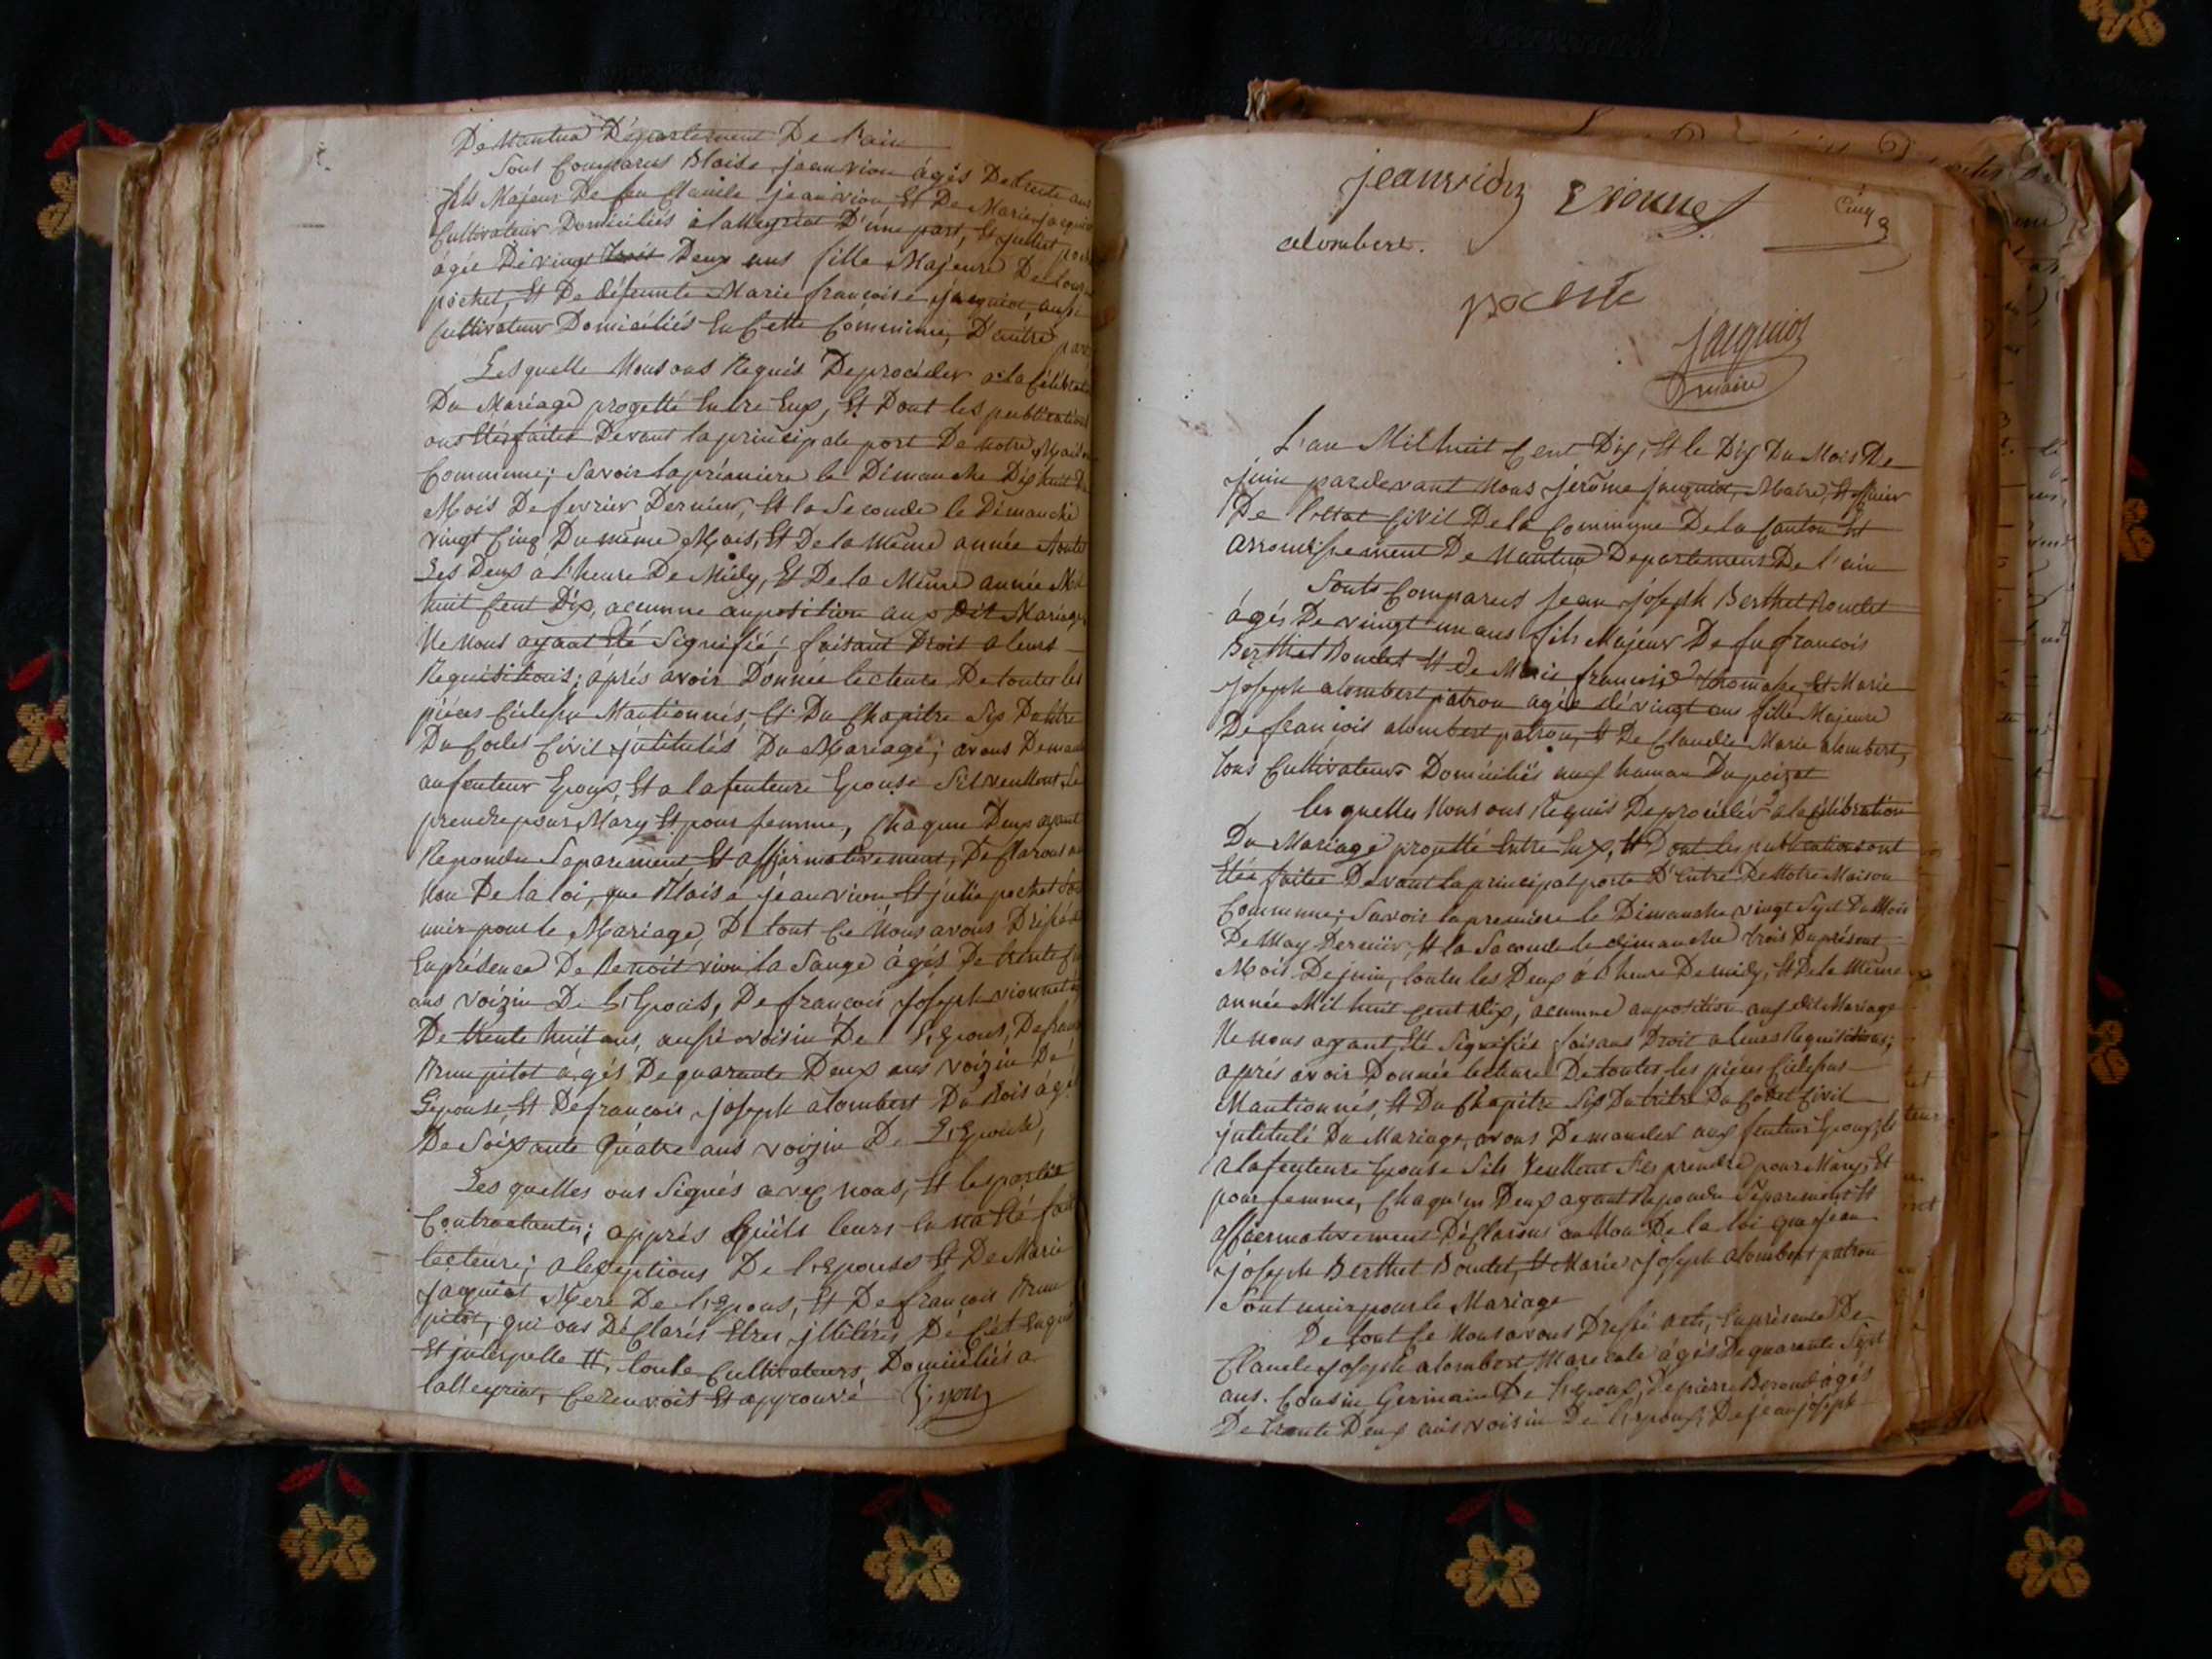 De Nantua Département De l'ain
Sont Comparus Blaise jeanvion âgés De trente ans
fils Majeur De feu Claude jeanvion Et De Marie jacquiot
Cultivateur Domiciliés à lalleyriat D'une part, Et juliet poch
âgée De vingt Deux ans fille Majeure De
pochet, Et De défeunte Marie francoise jacquiot, aussi
Cultivateur Domiciliés En Cette Commune, D'autre part
Lesquelle Nous ons Requis De procéder a la Célébration
Du Mariage progetté Entre Eux, Et Dont les publications
ons Etés faites Devant la principale port De notre Maison
Commune; Savoir la première le Dimanche Dix huit Du
Mois De fevrier Dernier, Et la Seconde le Dimanche
vingt Cinq Du même Mois, Et De la même année toute
Les Deux a l'heure De Midy, Et De la Même année Mil
huit Cent Dix, aucunne auposition aux Dit Mariage
Ne nous ayant Eté Signifié; faisant Droit a leurs
Requisitions; après avoir Donnée lecteure De toutes les
pièces Cidessu Mantionnés, Et Du Chapitre Six Du titre
Du Codes Civil jntitulés Du Mariage; avons Demandé
au feuteur Epoux, Et a la feuteure Epouse Sil veullent Se
prendre pour Mary Et pour femme, Chaqun Deux ayant
Repondu Séparément Et affirmativement, Déclarons au
Non De la loi, que Blaise jeanvion, Et julie pochet Son
unir pour le Mariage, De tout Ce Nous avons Dressé
En présence De Benoit vion la Sauge âgés De trente
ans voizin De l'Epous, De françois Joseph vionnet
De trente huit ans, aussi voisin De l'Epous, De
Brunpitot agés De quarante Deux ans voizin De
L'epouse, Et De françois Joseph alombert Du Bois âgé
De Soixante Quatre ans voizin De L'Epouse,
Les quelles ons Signés avec nous, Et les parties
Contractantes; apprés Quils leurs En na Eté fait
lecteure; a l'exeptions De l'Epouse Et De Marie
Jaquiot Mère De l'Epous, Et De françois Brun
pitot, qui ons Déclarés Etres jllitérés De Cét Enquis
Et jnterpelle Et, toute Cultivateurs, Domiciliés a
lalleyriat, Ce renvoit Et approuvé
jeanvion vionnet Cinq
alombert.
pochet
Jacquiot
maire
L'an Mil huit Cent Dix, Et le Dix Du Mois De
juin par devant Nous jerôme jacquiot, Maire, Et officier
De l'ettat Civil De la Commune De la Canton Et
arrondissement De Nantua Departement De l'ain
Sonts Comparus jean Joseph Berthet Boudet
âgés De vingt un ans fils Majeur De fu francois
Berthet Boudet Et de Marie francoise thomasse, Et Marie
Joseph alombert patron agée de vingt ans fille Majeure
De francois alombert patron, Et De Claudie Marie alombert,
tous Cultivateurs Domiciliés aux hamau Du poizat
les quelles Nous ons Requis De procéder a la Célébration
Du Mariage progetté Entre Eux, Et Dont les publications ont
Etée faites Devant la principal porte D'Entré De Notre Maison
Commune; Savoir la premiere le Dimanche vingt Sept Du Mois
De May Dernier, Et la Seconde le dimanche trois Du présent
Mois De juin, toutes les Deux à l'heure De midy, Et De la Même
année Mil huit Cent dix, aucunne auposition aux dit Mariage
Ne nous ayant Eté Signifiés faisans Droit a leurs Requisitions;
après avoir Donnée lecteure De toutes les pièces Cidessus
Mantionnés, Et Du Chapitre Six Du titre Du Codet Civil
jntitulé Du Mariage, avons Demandes aux feuteur Epoux, Et
a la feuteure Epouse Sils veullent Ses prendre pour Mary, Et
pour femme, Chaqu'un Deux ayant Repondu Séparément Et
affirmativement Déclarons au Non De la loi que jean
joseph Berthet Boudet, Et Marie joseph alombert patron
Sont unir pour le Mariage
De tout Ce Nous avons Dressé acte, En présence De
Claude joseph alombert Marecale âgés De quarante Sept
ans. Cousin Germain De l'Epoux, De pierre Berond âgés
De trante Deux ans voisin De l'Epoux, De jean joseph